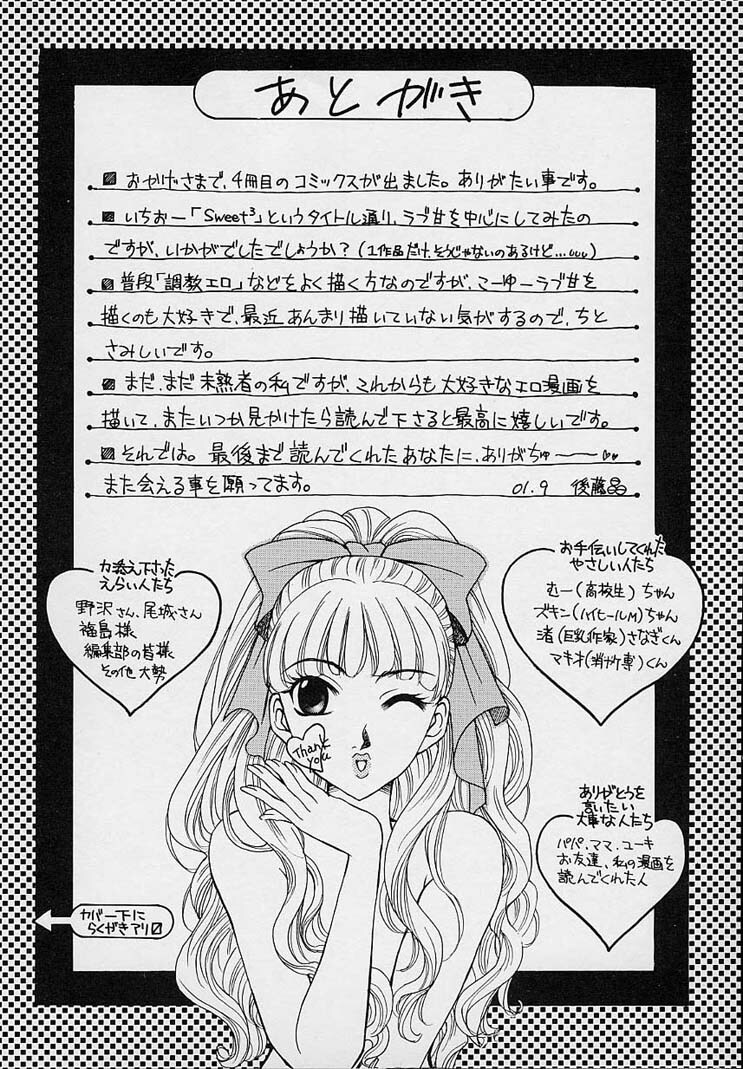 あとがき
■おかげさまで、4冊目のコミックスが出ました。ありがたい事です。
■いちおー「Sweet³」というタイトル通り、ラブ甘を中心にしてみたの
ですが、いかがでしたでしょうか?(1作品だけ、そうじゃないのあるけど…)
■普段「調教エロ」などをよく描く方なのですが、こーゆーラブ甘を
描くのも大好きで、最近あんまり描いていない気がするので、ちと
さみしいです。
■まだ、まだ未熟者の私ですが、これからも大好きなエロ漫画を
描いて、またいつか見かけたら読んで下さると最高に嬉しいです。
■それでは。最後まで読んでくれたあなたに、ありがちゅ〜〜♡♡
また会える事を願ってます。 01.9 後藤晶
お手伝いしてくれた
やさしい人たち
むー(高校生)ちゃん
ズキン(ハイヒールM)ちゃん
渚(巨乳作家)さなぎくん
マキオ()くん
力添え下さった
えらい人たち
野沢さん、尾城さん
福島様
編集部の皆様
その他大勢
Thank
you
ありがとうを
言いたい
大事な人たち
パパ、ママ、ユーキ
お友達、私の漫画を
読んでくれた人
カバー下に
らくがきアリ